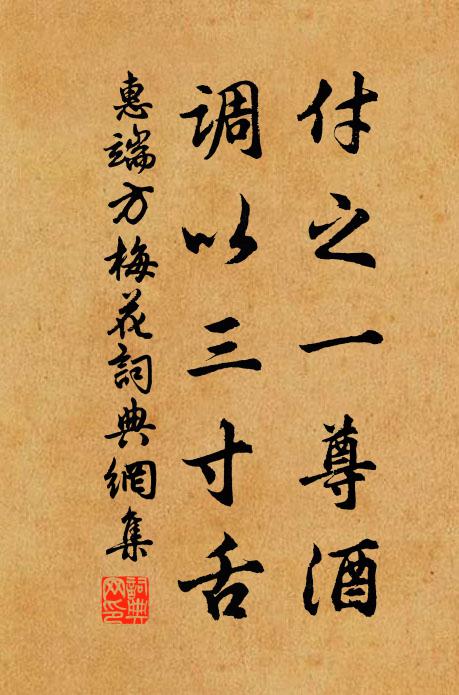 付之一尊酒
調以三寸舌
惠端方梅花詞典網集
詞典网印